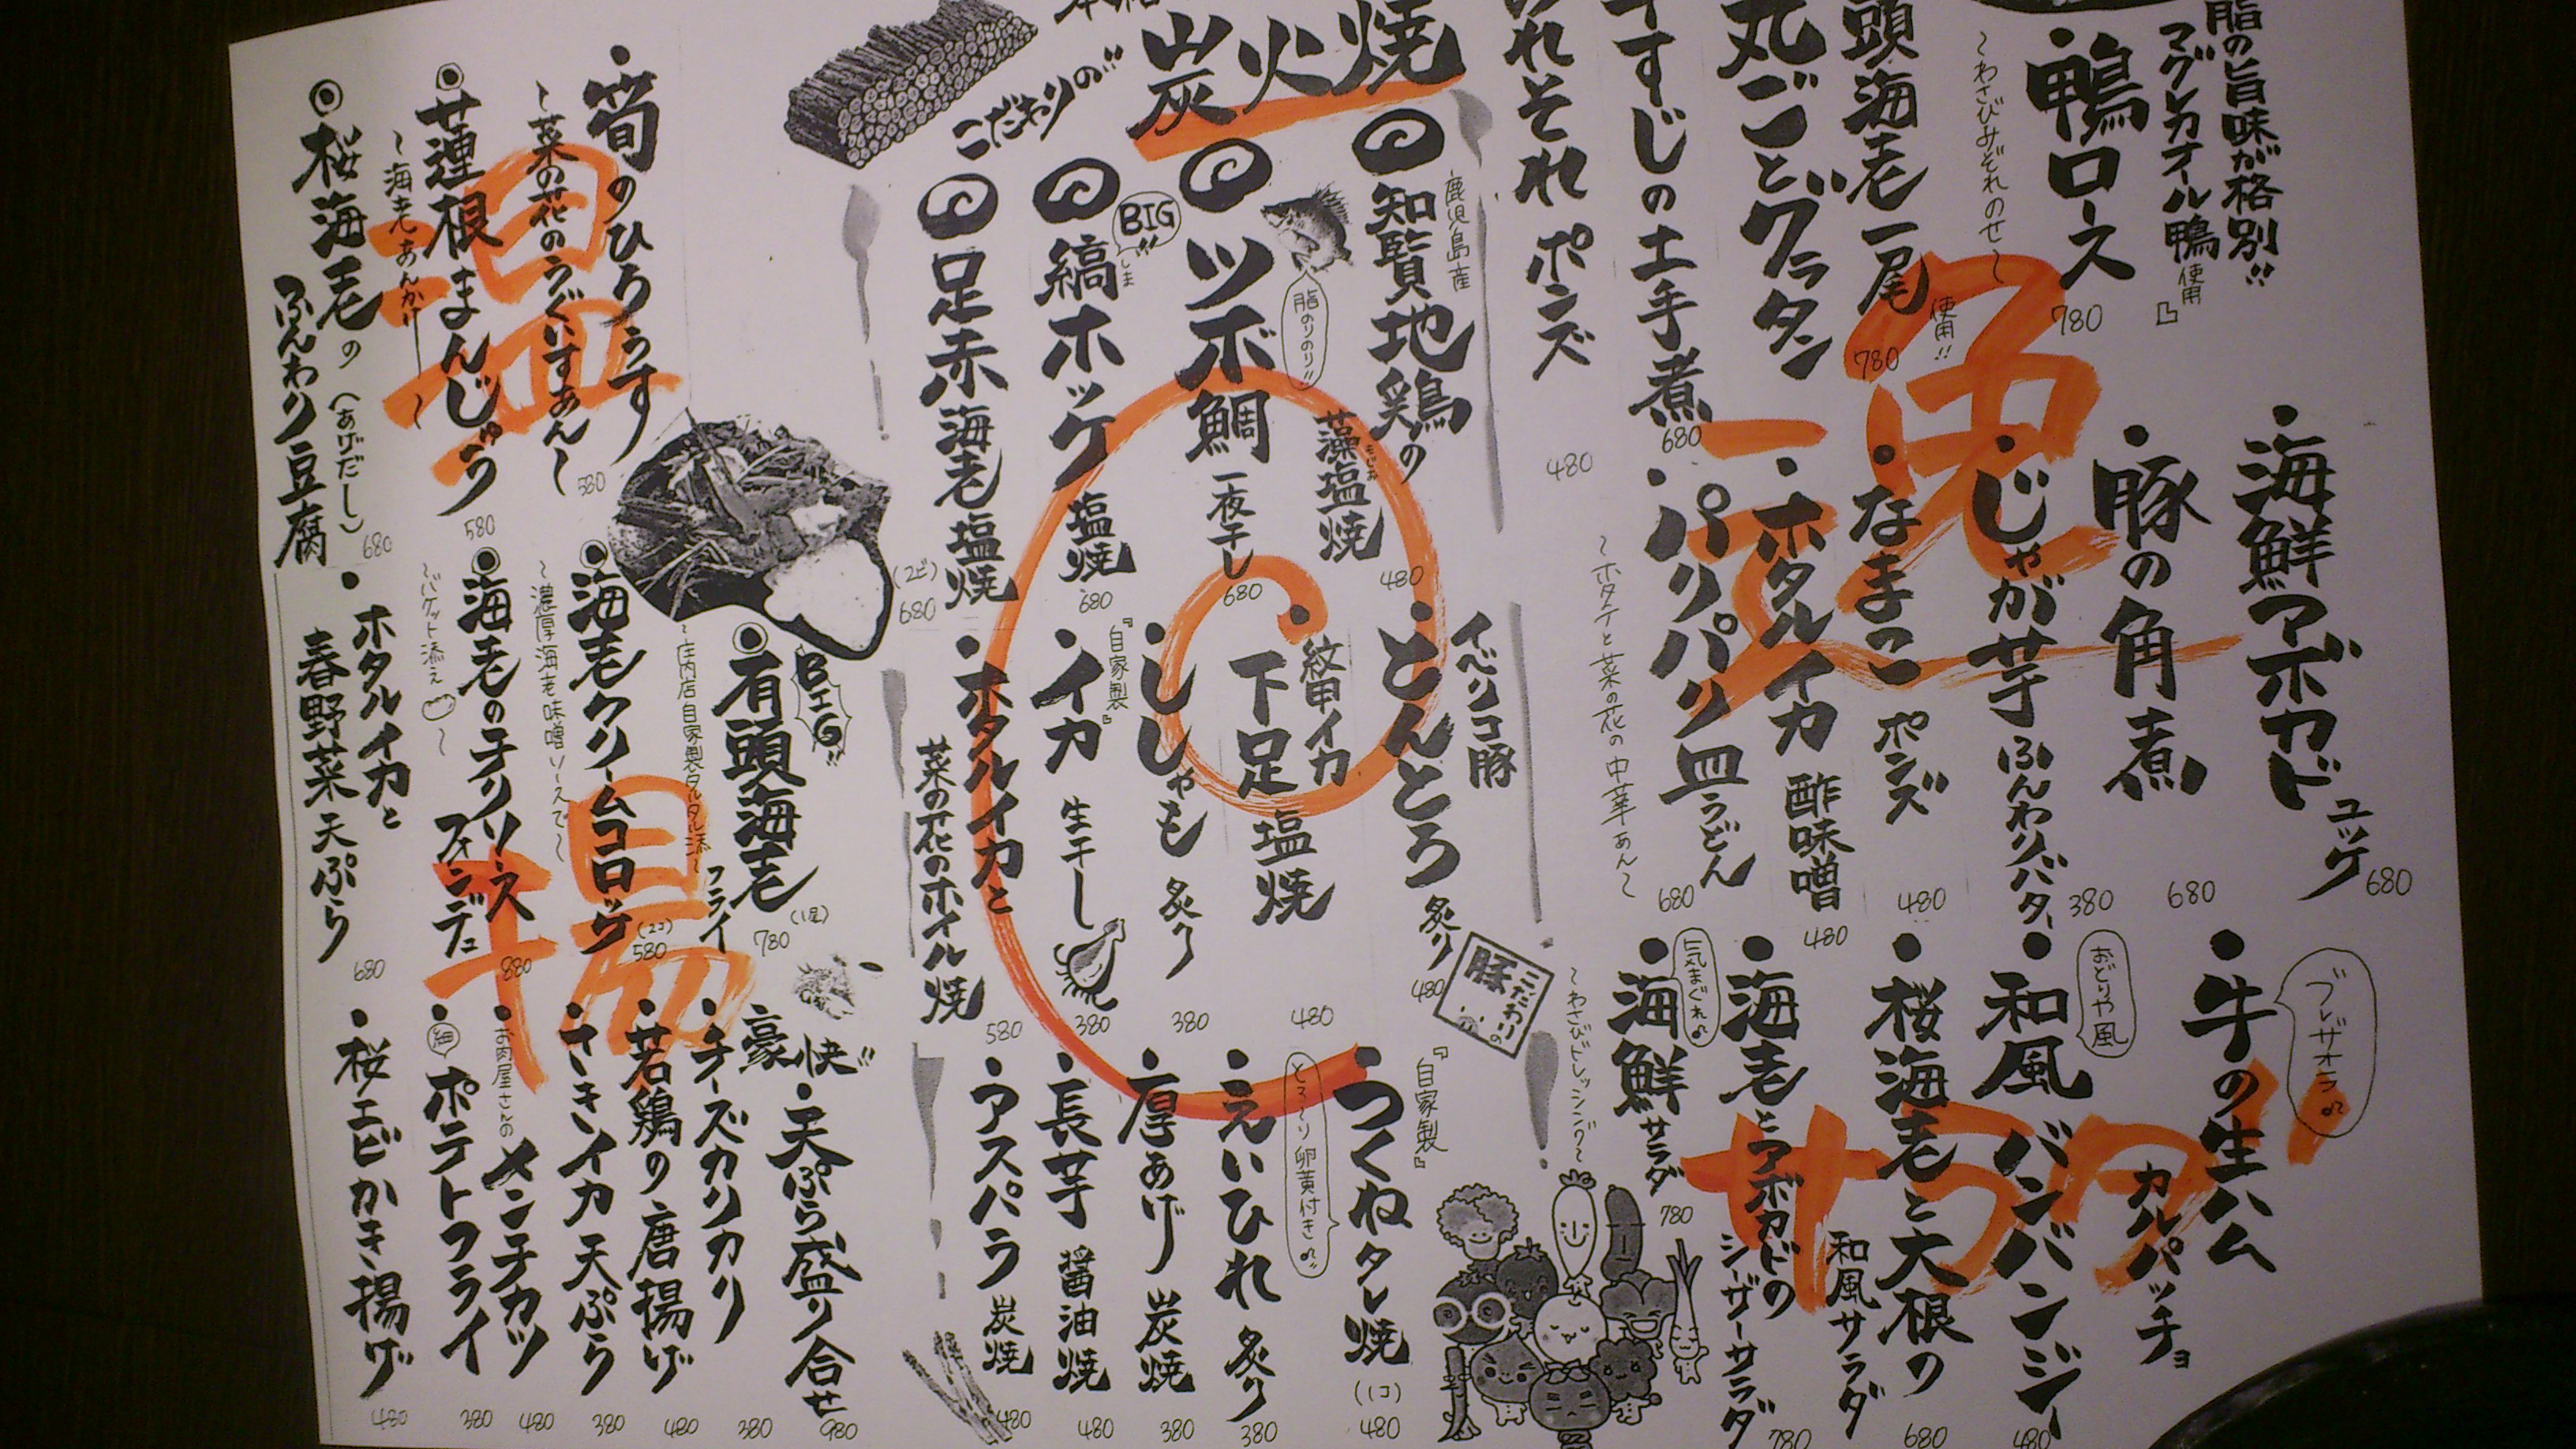 脂の旨味が格別!!
マグレカオール鴨使用』
鴨ロース
〜わさびみぞれのせ〜
780
頭海老一尾使用!!
丸ごとグラタン
780
すじの土手煮
680
れそれポンズ
480
一兎
海鮮アボカド
ユッケ
680
豚の角煮
680
じゃが芋ふんわりバター
380
なまこポンズ
480
ホタルイカ酢味噌
480
パリパリ皿うどん
〜ホタテと菜の花の中華あん〜
680
サラダ
ブレザオラ♪
牛の生ハム
カルパッチョ
おどりや風
和風バンバンジー
480
桜海老と大根の
和風サラダ
680
海老とアボカドの
シーザーサラダ
780
気まぐれ♪
海鮮サラダ
〜わさびドレッシング〜
780
こだわりの!!
炭火焼
鹿児島産
知覧地鶏の
藻塩焼
もじお
480
脂のりのり!!
ツボ鯛
一夜干し
680
BIG!!
縞ホッケ
しま
塩焼
680
足赤海老塩焼
(2ピ)
680
イベリコ豚
とんとろ炙り
480
こだわりの
豚
紋甲イカ
下足塩焼
480
ししゃも炙り
380
『自家製』
イカ生干し
380
ホタルイカと
菜の花のホイル焼
580
『自家製』
つくねタレ焼
(1コ)
480
とろ〜り卵黄付き♪
えいひれ炙り
380
厚あげ炭焼
380
長芋醤油焼
480
アスパラ炭焼
480
温
筍のひろうす
〜菜の花のうぐいすあん〜
580
蓮根まんじゅう
〜海老あんかけ〜
580
桜海老の(あげだし)
ふんわり豆腐
680
揚
BIG!!
有頭海老フライ
〜庄内店自家製タルタル添〜
(1尾)
780
海老クリームコロッケ
〜濃厚海老味噌ソースで〜
(2コ)
580
海老のチリソース
フォンデュ
〜バケット添え〜
880
ホタルイカと
春野菜天ぷら
680
豪快!!
天ぷら盛り合せ
980
チーズカリカリ
380
若鶏の唐揚げ
480
さきイカ天ぷら
380
お肉屋さんの
メンチカツ
480
ポテトフライ
380
桜エビかき揚げ
480